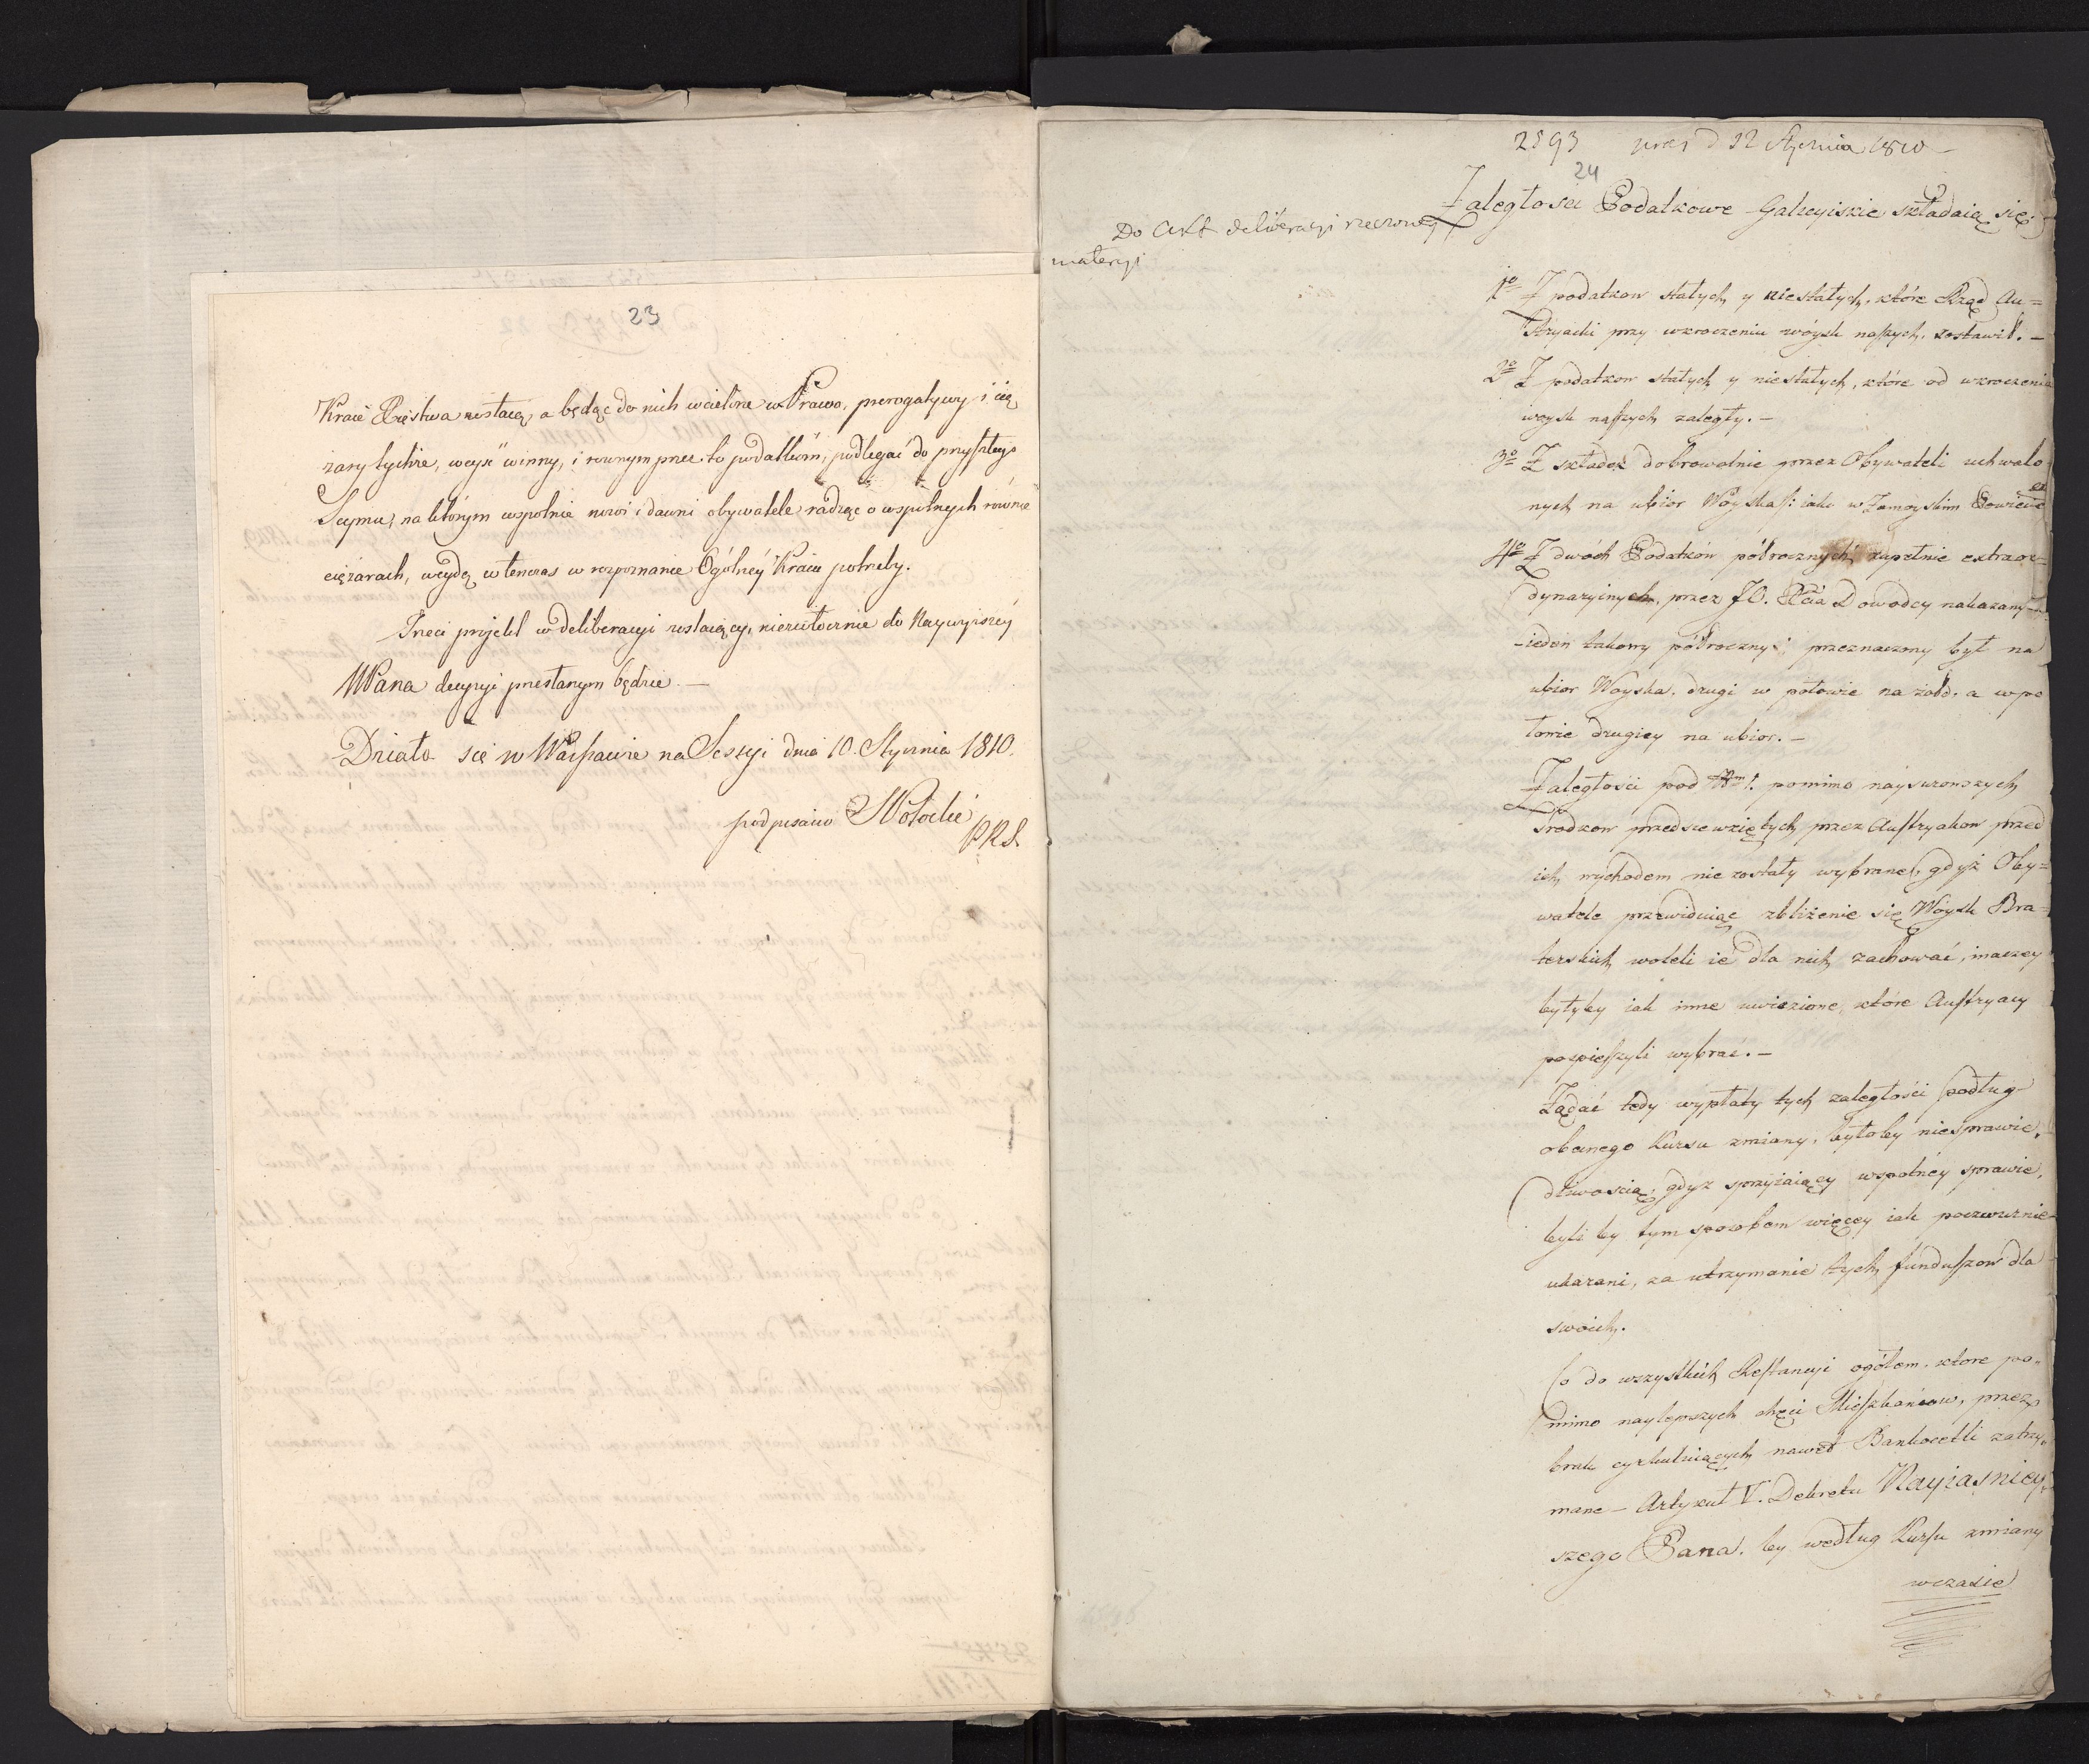 23
Kraie Xięstwa zostaią, a będąc do nich wcielone w Prawa, prerogatywy i cię
żary tychże, weyść winny, i rownym przez to podatkóm, podlegać do przyszłego
Seymu, na którym wspólnie nowi i dawni obywatele radząc o wspólnych równie
ciężarach, weydą wtenczas w rozpoznanie Ogólnéy Kraiu potrzeby.
Trzeci projekt w deliberacyi zostaiący, niezwłocznie do Naywyższéy
WPana decyzyi przesłanym będzie. —
Działo się w Warszawie na Sessyi dnia 10. Stycznia 1810.
podpisano Potocki
P.R.S.
2593 praes d 12 Stycznia 1810 —
24
Zaległości Podatkowe Galicyiskie składaią się.
Do Akt deliberacyi rzeczoney
materyi
1º Z podatkow stałych y niestałych, które Rząd Au=
stryacki przy wkroczeniu wóysk naszych, zostawił. —
2º Z podatkow stałych y niestałych, które od wkroczenia
woysk naszych zaległy. —
3º Z składek dobrowolnie przez Obywateli uchwalo
nych na ubior Woyska /: iako w Zamoyskim Powiecie
4º Z dwóch Podatków półrocznych zupełnie extraor=
dynaryinych, przez JO. Xcia Dowodcy nakazany
-ieden takowy półroczny przeznaczony był na
ubior Woyska, drugi w połowie na żołd, a w po
łowie drugiey na ubior. —
Zaległości pod Nrm 1. pomimo naysurowszych
srodkow przedsiewziętych przez Austryakow przed
ich wychodem nie zostały wybrane, gdyż Oby=
watele przewiduiąc zbliżenie się Woysk Bra=
terskich woleli ie dla nich zachować, inaczey
byłyby iak inne uwiezione, które Austryacy
pospieszyli wybrac. —
Żądać tedy wypłaty tych zaległości podług
obecnego Kursu zmiany, byłoby niesprawie,
dliwoscią, gdyż sprzyiaiący wspolney sprawie,
byli by tym sposobem więcey iak poczwornie
ukarani, za utrzymanie tych funduszow dla
swoich.
Co do wszystkich Restancyi ogółem, ktore po„
mimo naylepszych chęci Mieszkańcow, przez
brak cyrkuluiących nawet Bankocetli zatrzy„
mane — Artykuł V. Dekretu Nayiasniey„
szego Pana, by według Kursu zmiany
wczasie